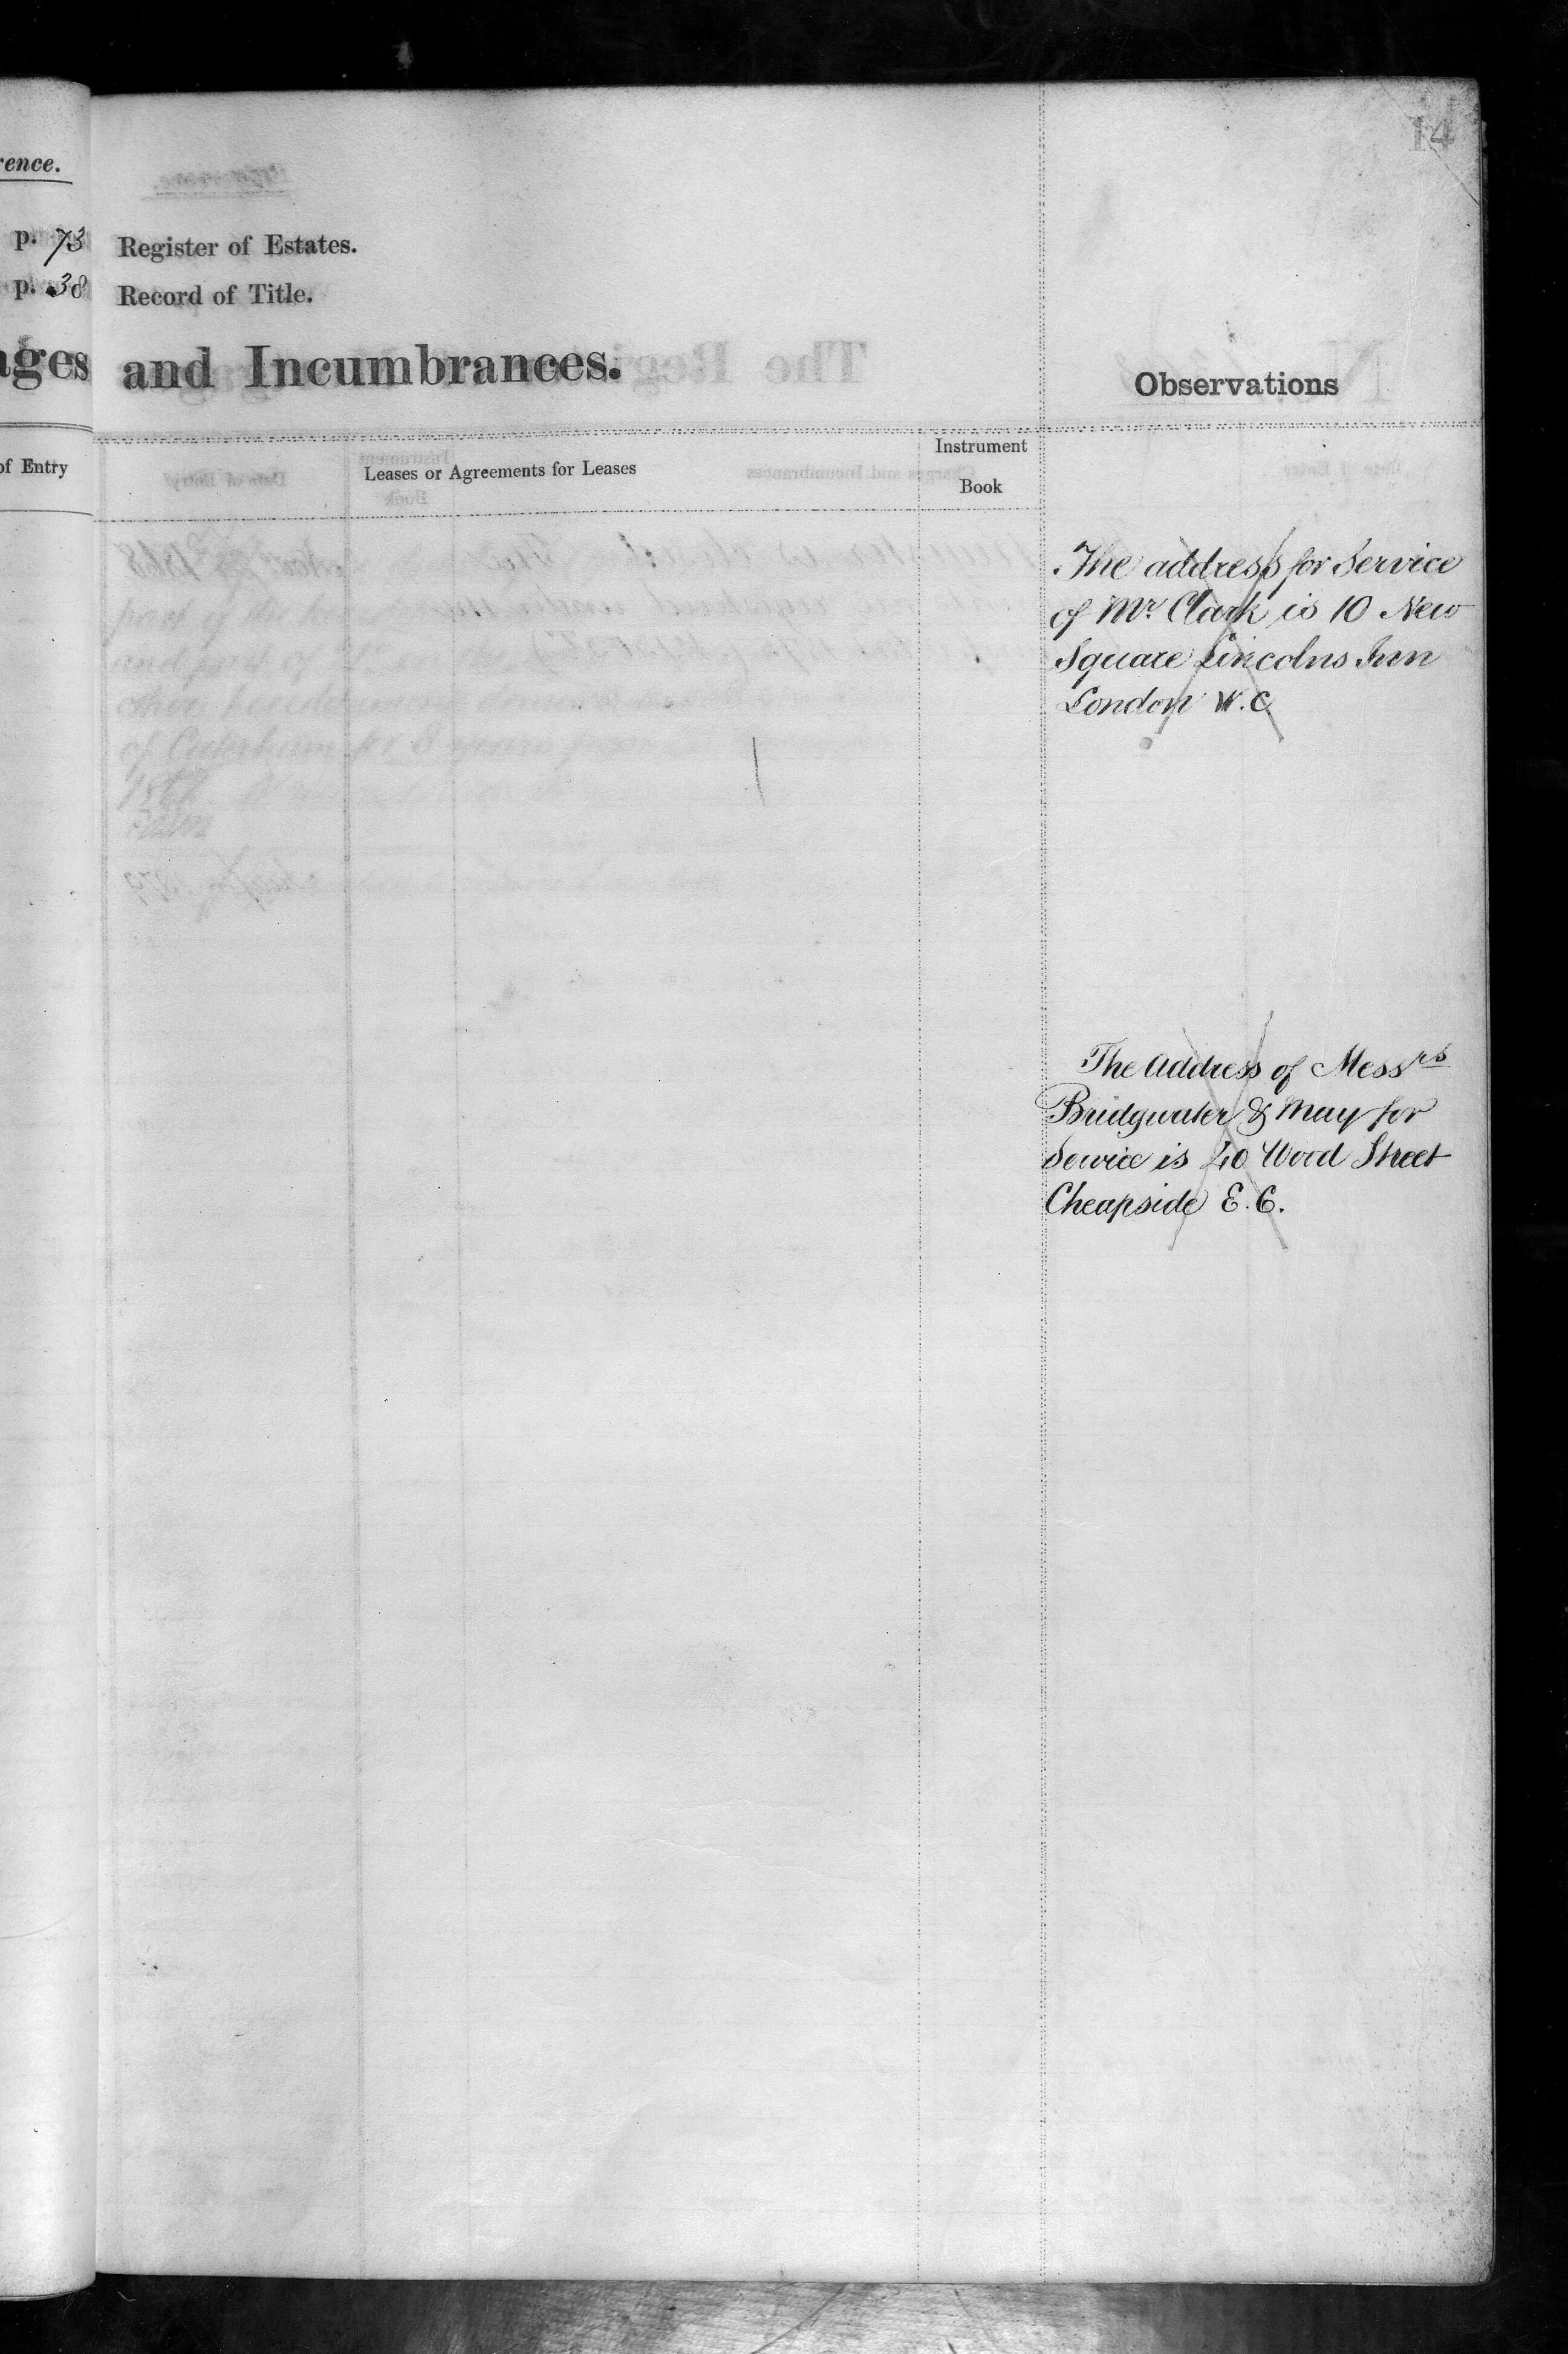 14
rence.
p. 73 Register of Estates.
p. 38 Record of Title.
ages and Incumbrances.
Observations
of Entry
Leases or Agreements for Leases
Instrument
Book
The address for Service
of Mr. Clark is 10 New
Square Lincolns Inn
London W.C.
The Address of Messrs
Bridgwater & May for
Service is 40 Wood Street
Cheapside E.C.